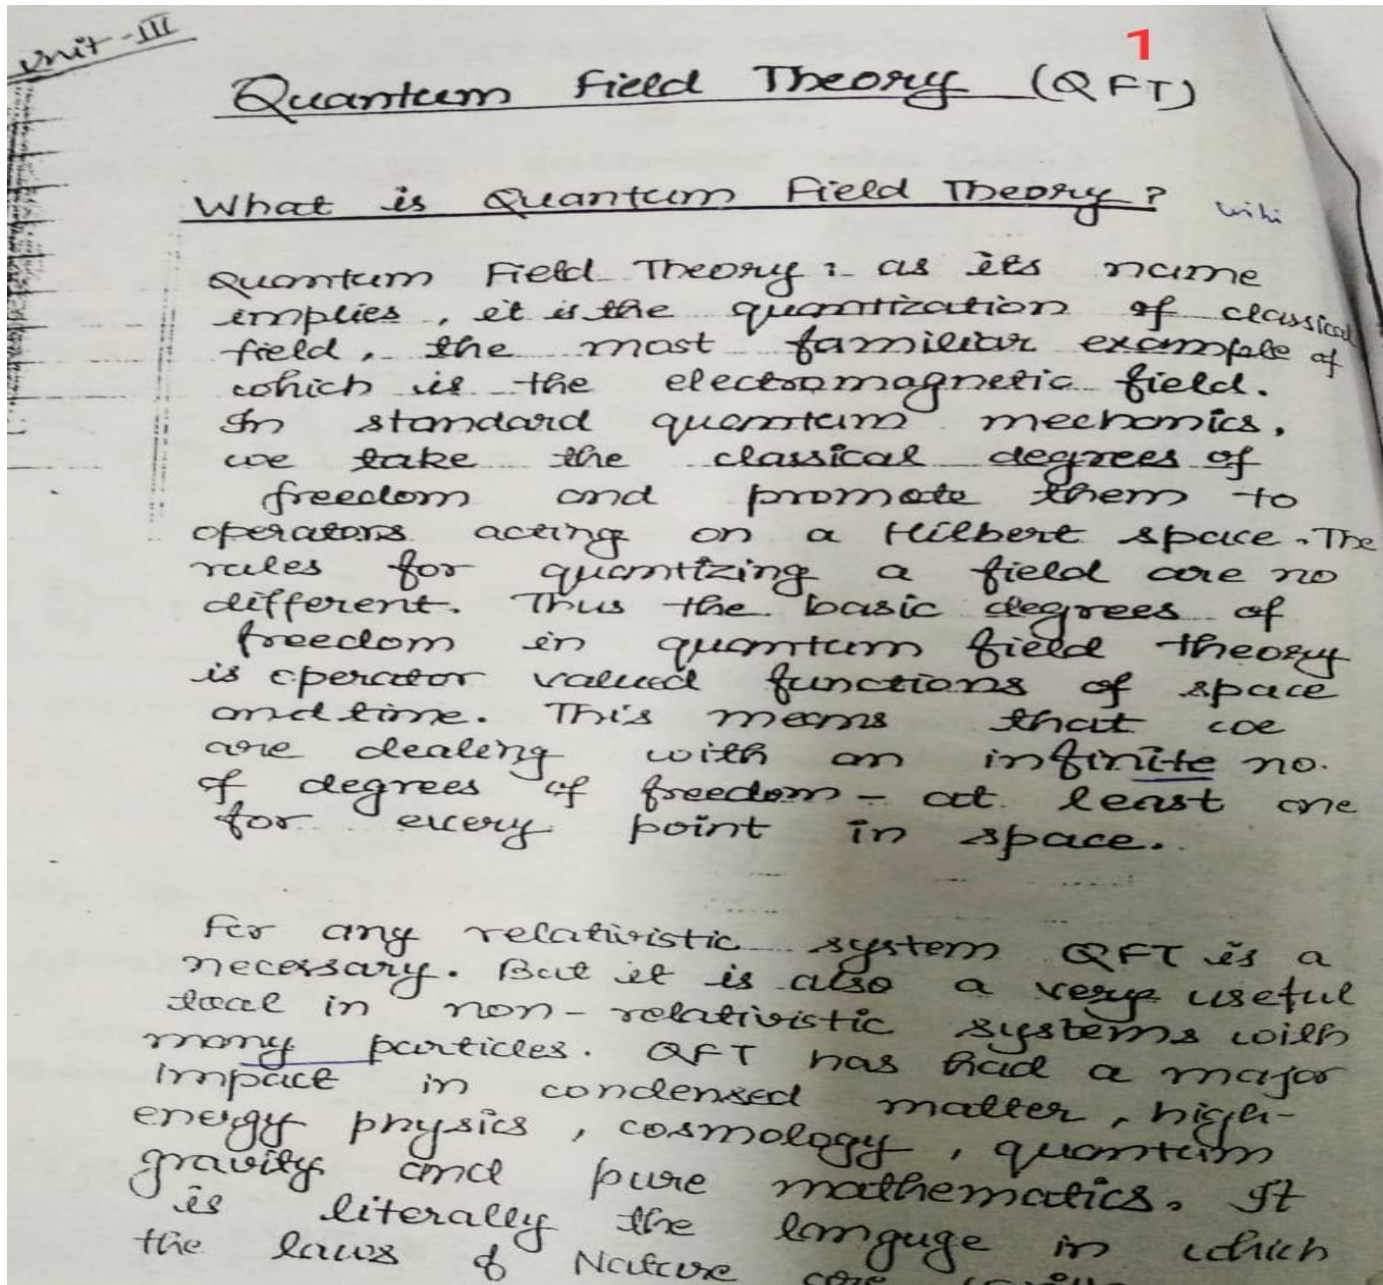 Unit-III
1
Quantum Field Theory (QFT)
What is Quantum Field Theory? wiki
Quantum Field Theory :- as its name
implies, it is the quantization of classical
field, the most familiar example of
which is the electromagnetic field.
In standard quantum mechanics,
we take the classical degrees of
freedom and promote them to
operators acting on a Hilbert space. The
rules for quantizing a field are no
different. Thus the basic degrees of
freedom in quantum field theory
is operator valued functions of space
and time. This means that we
are dealing with an infinite no.
of degrees of freedom - at least one
for every point in space.
For any relativistic system QFT is a
necessary. But it is also a very useful
tool in non-relativistic systems with
many particles. QFT has had a major
impact in condensed matter, high-
energy physics, cosmology, quantum
gravity and pure mathematics. It
is literally the languge in which
the laws of Nature are